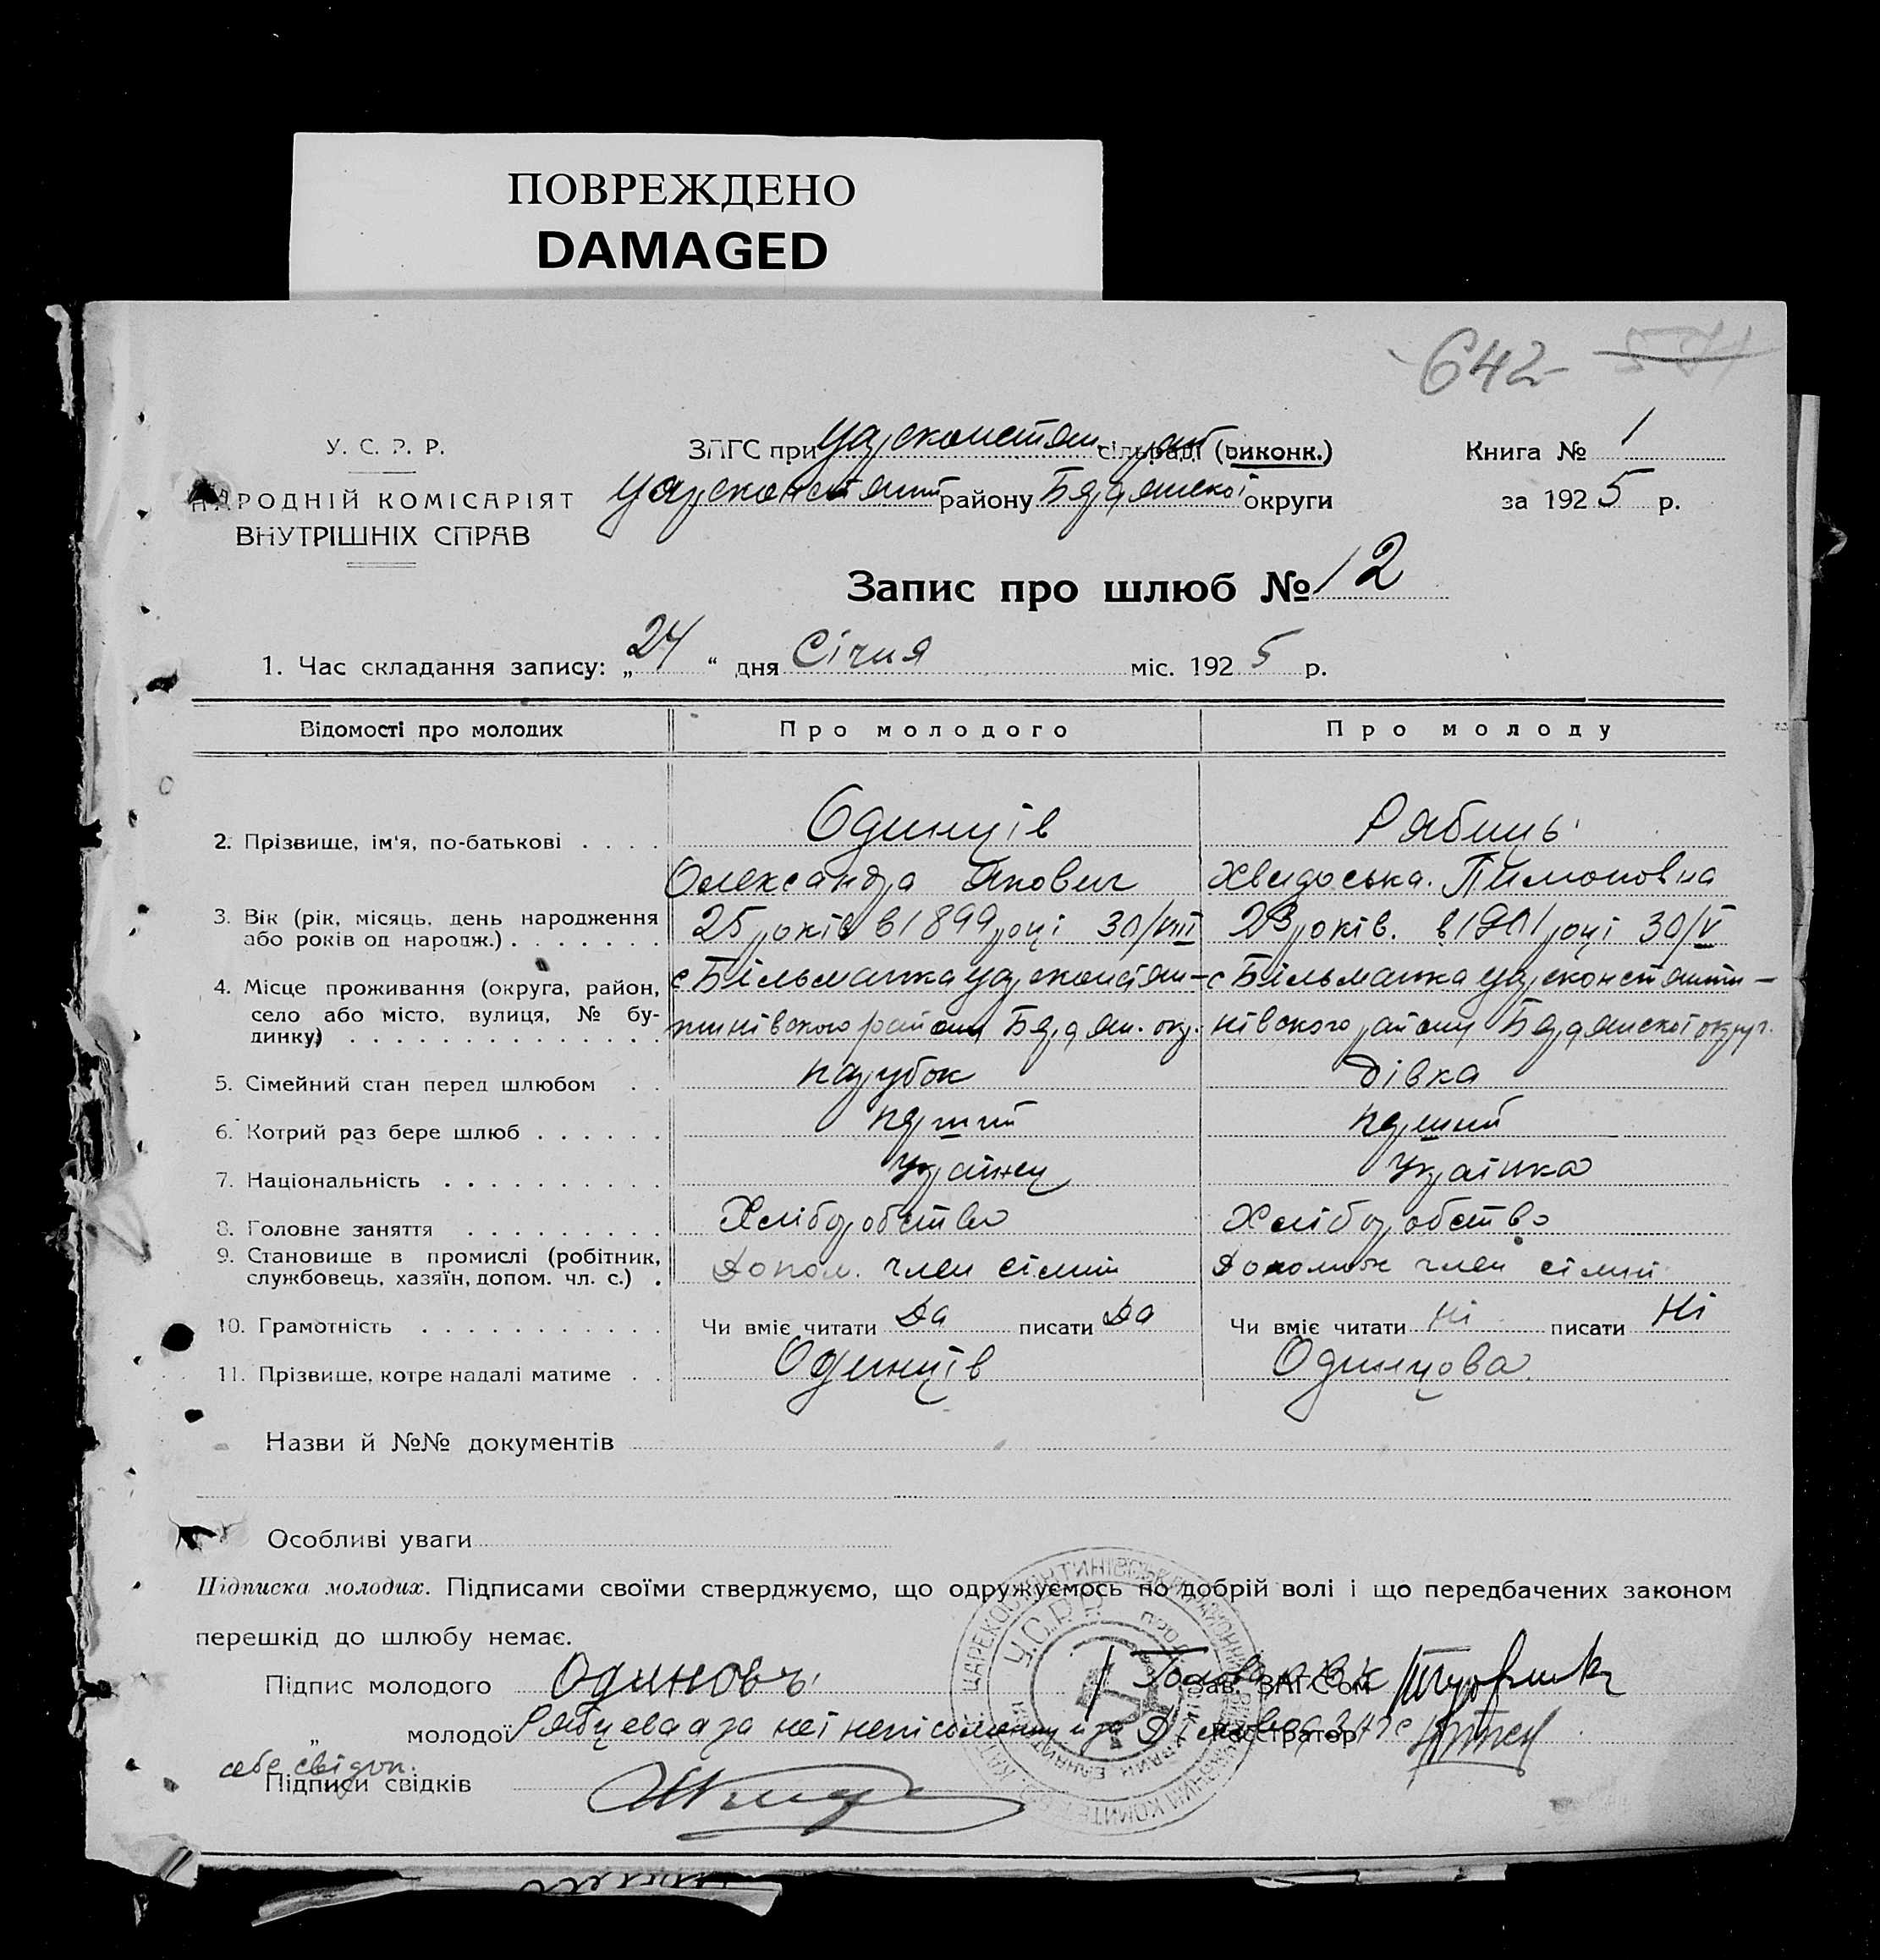 ПОВРЕЖДЕНО
DAMAGED
642
У. С. Р. Р.
ЗАГС при Царсконстян. сільраді (виконк.)
Книга № 1
НАРОДНІЙ КОМІСАРІЯТ
Царсконстянт району Бердянської округи
за 1925 р.
ВНУТРІШНІХ СПРАВ
Запис про шлюб № 12
1. Час складання запису: „24“ дня Січня міс. 1925 р.
Відомості про молодих
Про молодого
Про молоду
2. Прізвище, ім'я, по-батькові . . . .
Одинців
Рябець
Олександра Якович
Хведоська. Пимоновна
3. Вік (рік, місяць, день народження
або років од народж.) . . . . . . .
25 років в 1899 році 30/VIII
23 років. в 1901 році 30/V
4. Місце проживання (округа, район,
село або місто, вулиця, № бу-
динку) . . . . . . . . . . . . . .
с Більманка Царсконстян-
тинівского района Бердян. окр.
с Більманка Царсконстянти-
нівского району Бердянскої округ.
5. Сімейний стан перед шлюбом . .
парубок
дівка
6. Котрий раз бере шлюб . . . . . .
перший
перший
7. Національність . . . . . . . . . .
Українец
Українка
8. Головне заняття . . . . . . . . .
Хліборобство
Хліборобство
9. Становище в промислі (робітник,
службовець, хазяїн, допом. чл. с.) .
Допом. член сімий
Допоможн член сімий
10. Грамотність . . . . . . . . . . .
Чи вміє читати Да писати Да
Чи вміє читати Ні писати Ні
11. Прізвище, котре надалі матиме . .
Одинців
Одинцова.
Назви й №№ документів
Особливі уваги
Підписка молодих. Підписами своїми стверджуємо, що одружуємось по добрій волі і що передбачених законом
перешкід до шлюбу немає.
Підпис молодого Одиновъ
Зав. ЗАГСом
„ молодої Рябцева а за неї неписьменну и за
Реєстратор
себе свідок.
Підписи свідків
У.С.Р.Р.